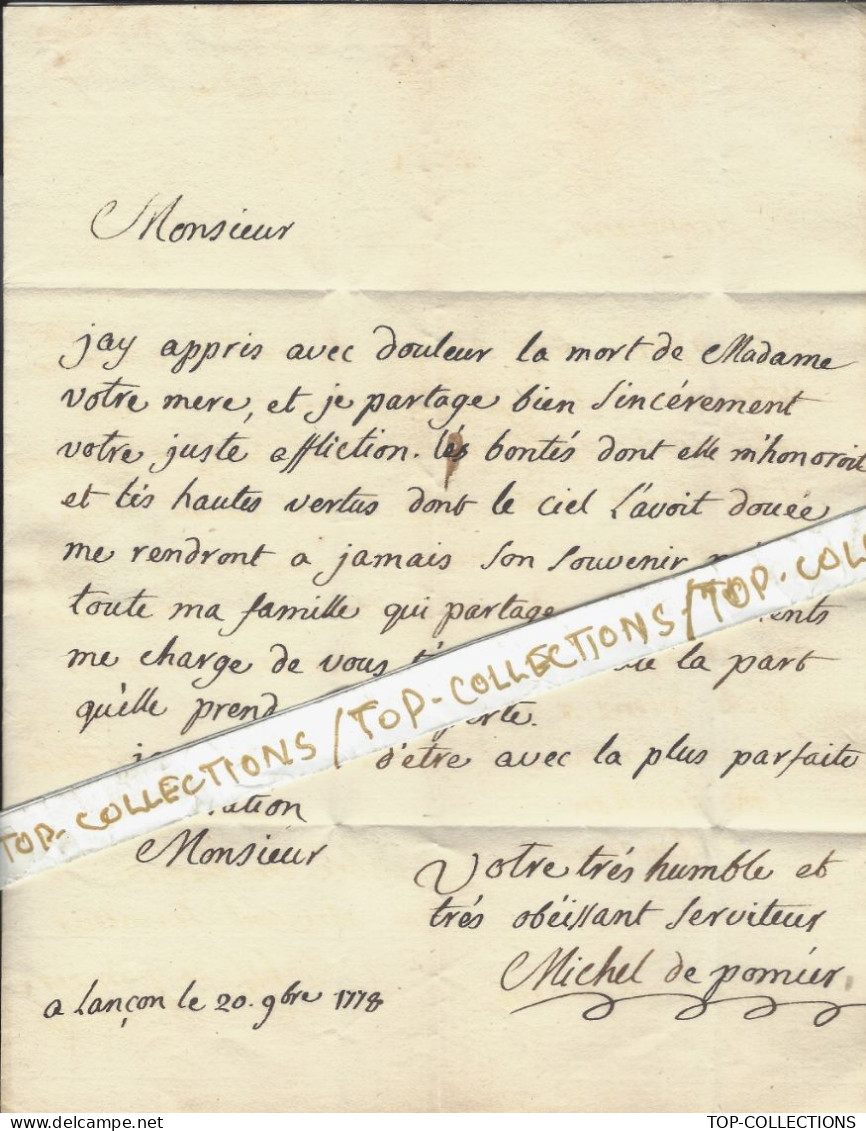 Monsieur
jay appris avec douleur la mort de Madame
votre mere, et je partage bien sincérement
votre juste affliction. les bontés dont elle m'honoroit
et les hautes vertus dont le ciel l'avoit douée
me rendront a jamais son souvenir
toute ma famille qui partage
me charge de vous la part
qu'elle prend perte.
d'etre avec la plus parfaite
Monsieur
Votre trés humble et
trés obéissant serviteur
Michel de pomier
a Lançon le 20. 9bre 1778
TOP-COLLECTIONS / TOP-COLLECTIONS / TOP-COLL
TOP-COLLECTIONS